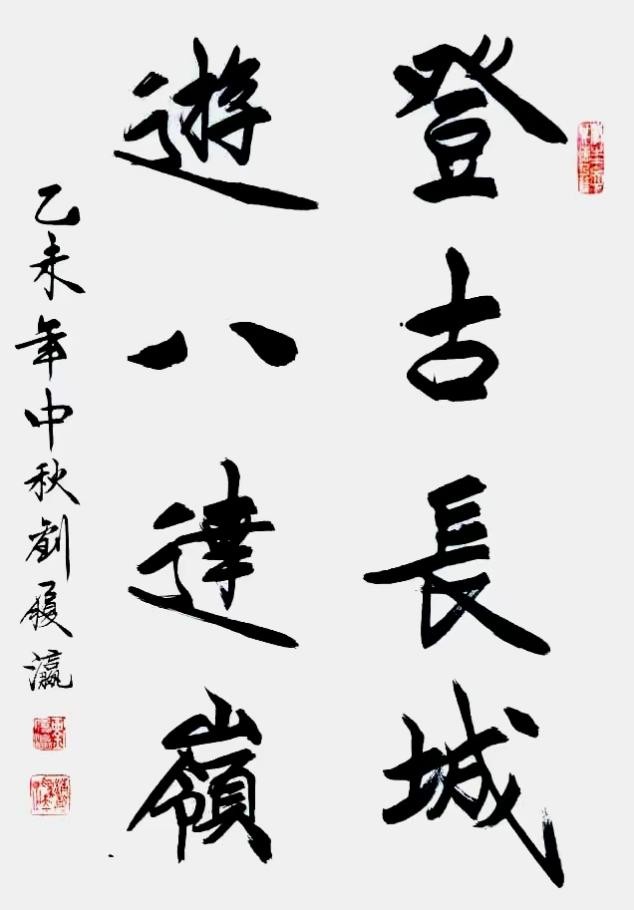 登古長城
遊八達嶺
乙未年中秋劉履瀛